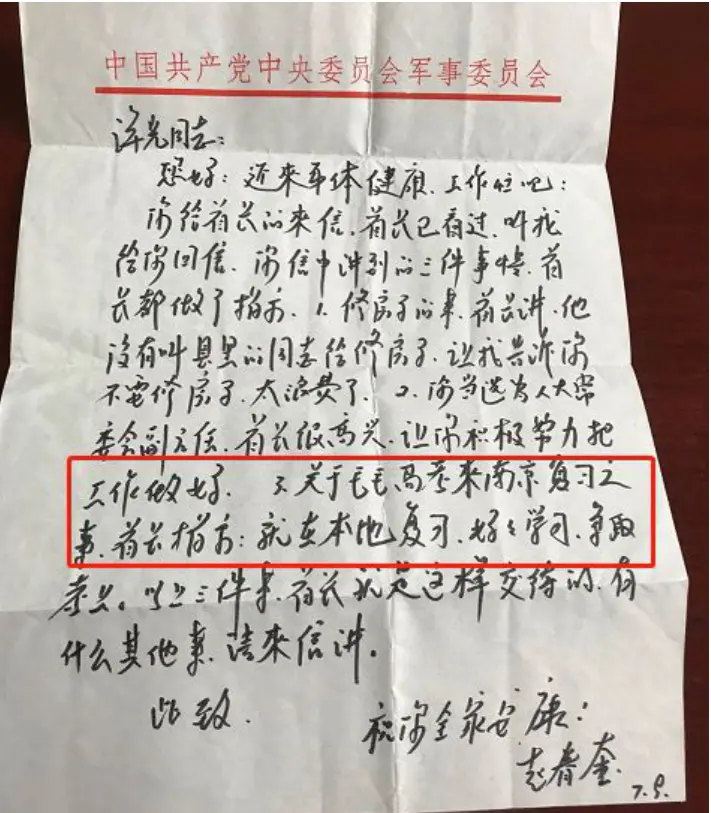 中国共产党中央委员会军事委员会
许光同志:
您好:近来身体健康、工作忙吧:
你给首长的来信、首长已看过、叫我
给你回信、你信中讲到的三件事情、首
长都做了指示、1.修房子的事、首长讲、他
没有叫县里的同志给修房子、让我告诉你
不要修房子、太浪费了、2.你当选为人大常
委会副主任、首长很高兴、让你积极努力把
工作做好、3.关于毛毛高考来南京复习之
事、首长指示:就在本地复习、好好学习、争取
考上。以上三件事、首长就是这样交待的、有
什么其他事、请来信讲。
此致、
祝你全家安康:
赵春奎
7.9.